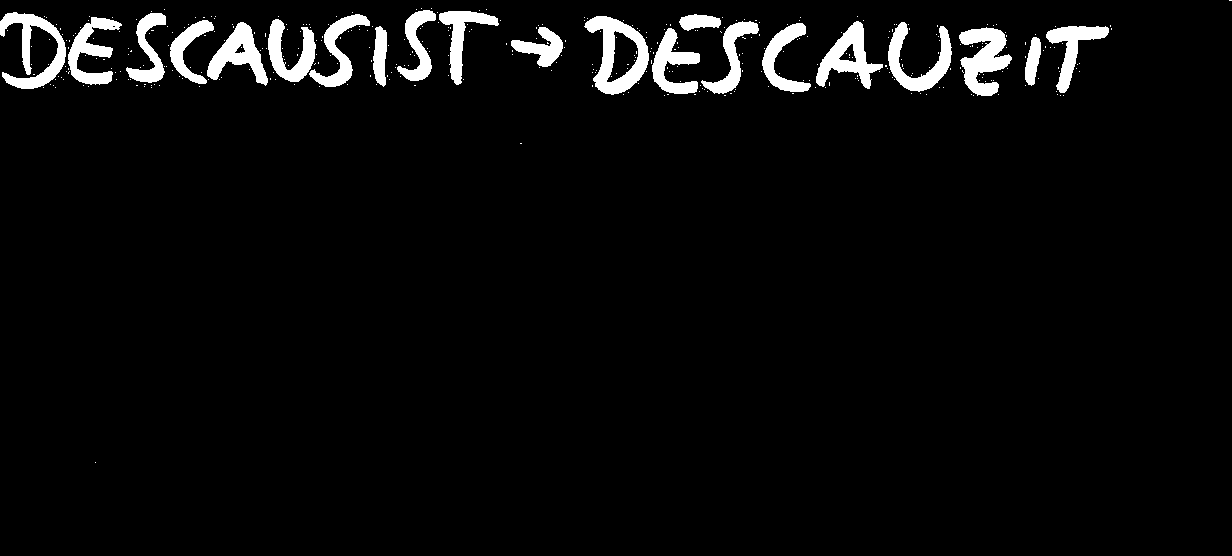 DESCAUSIST → DESCAUZIT